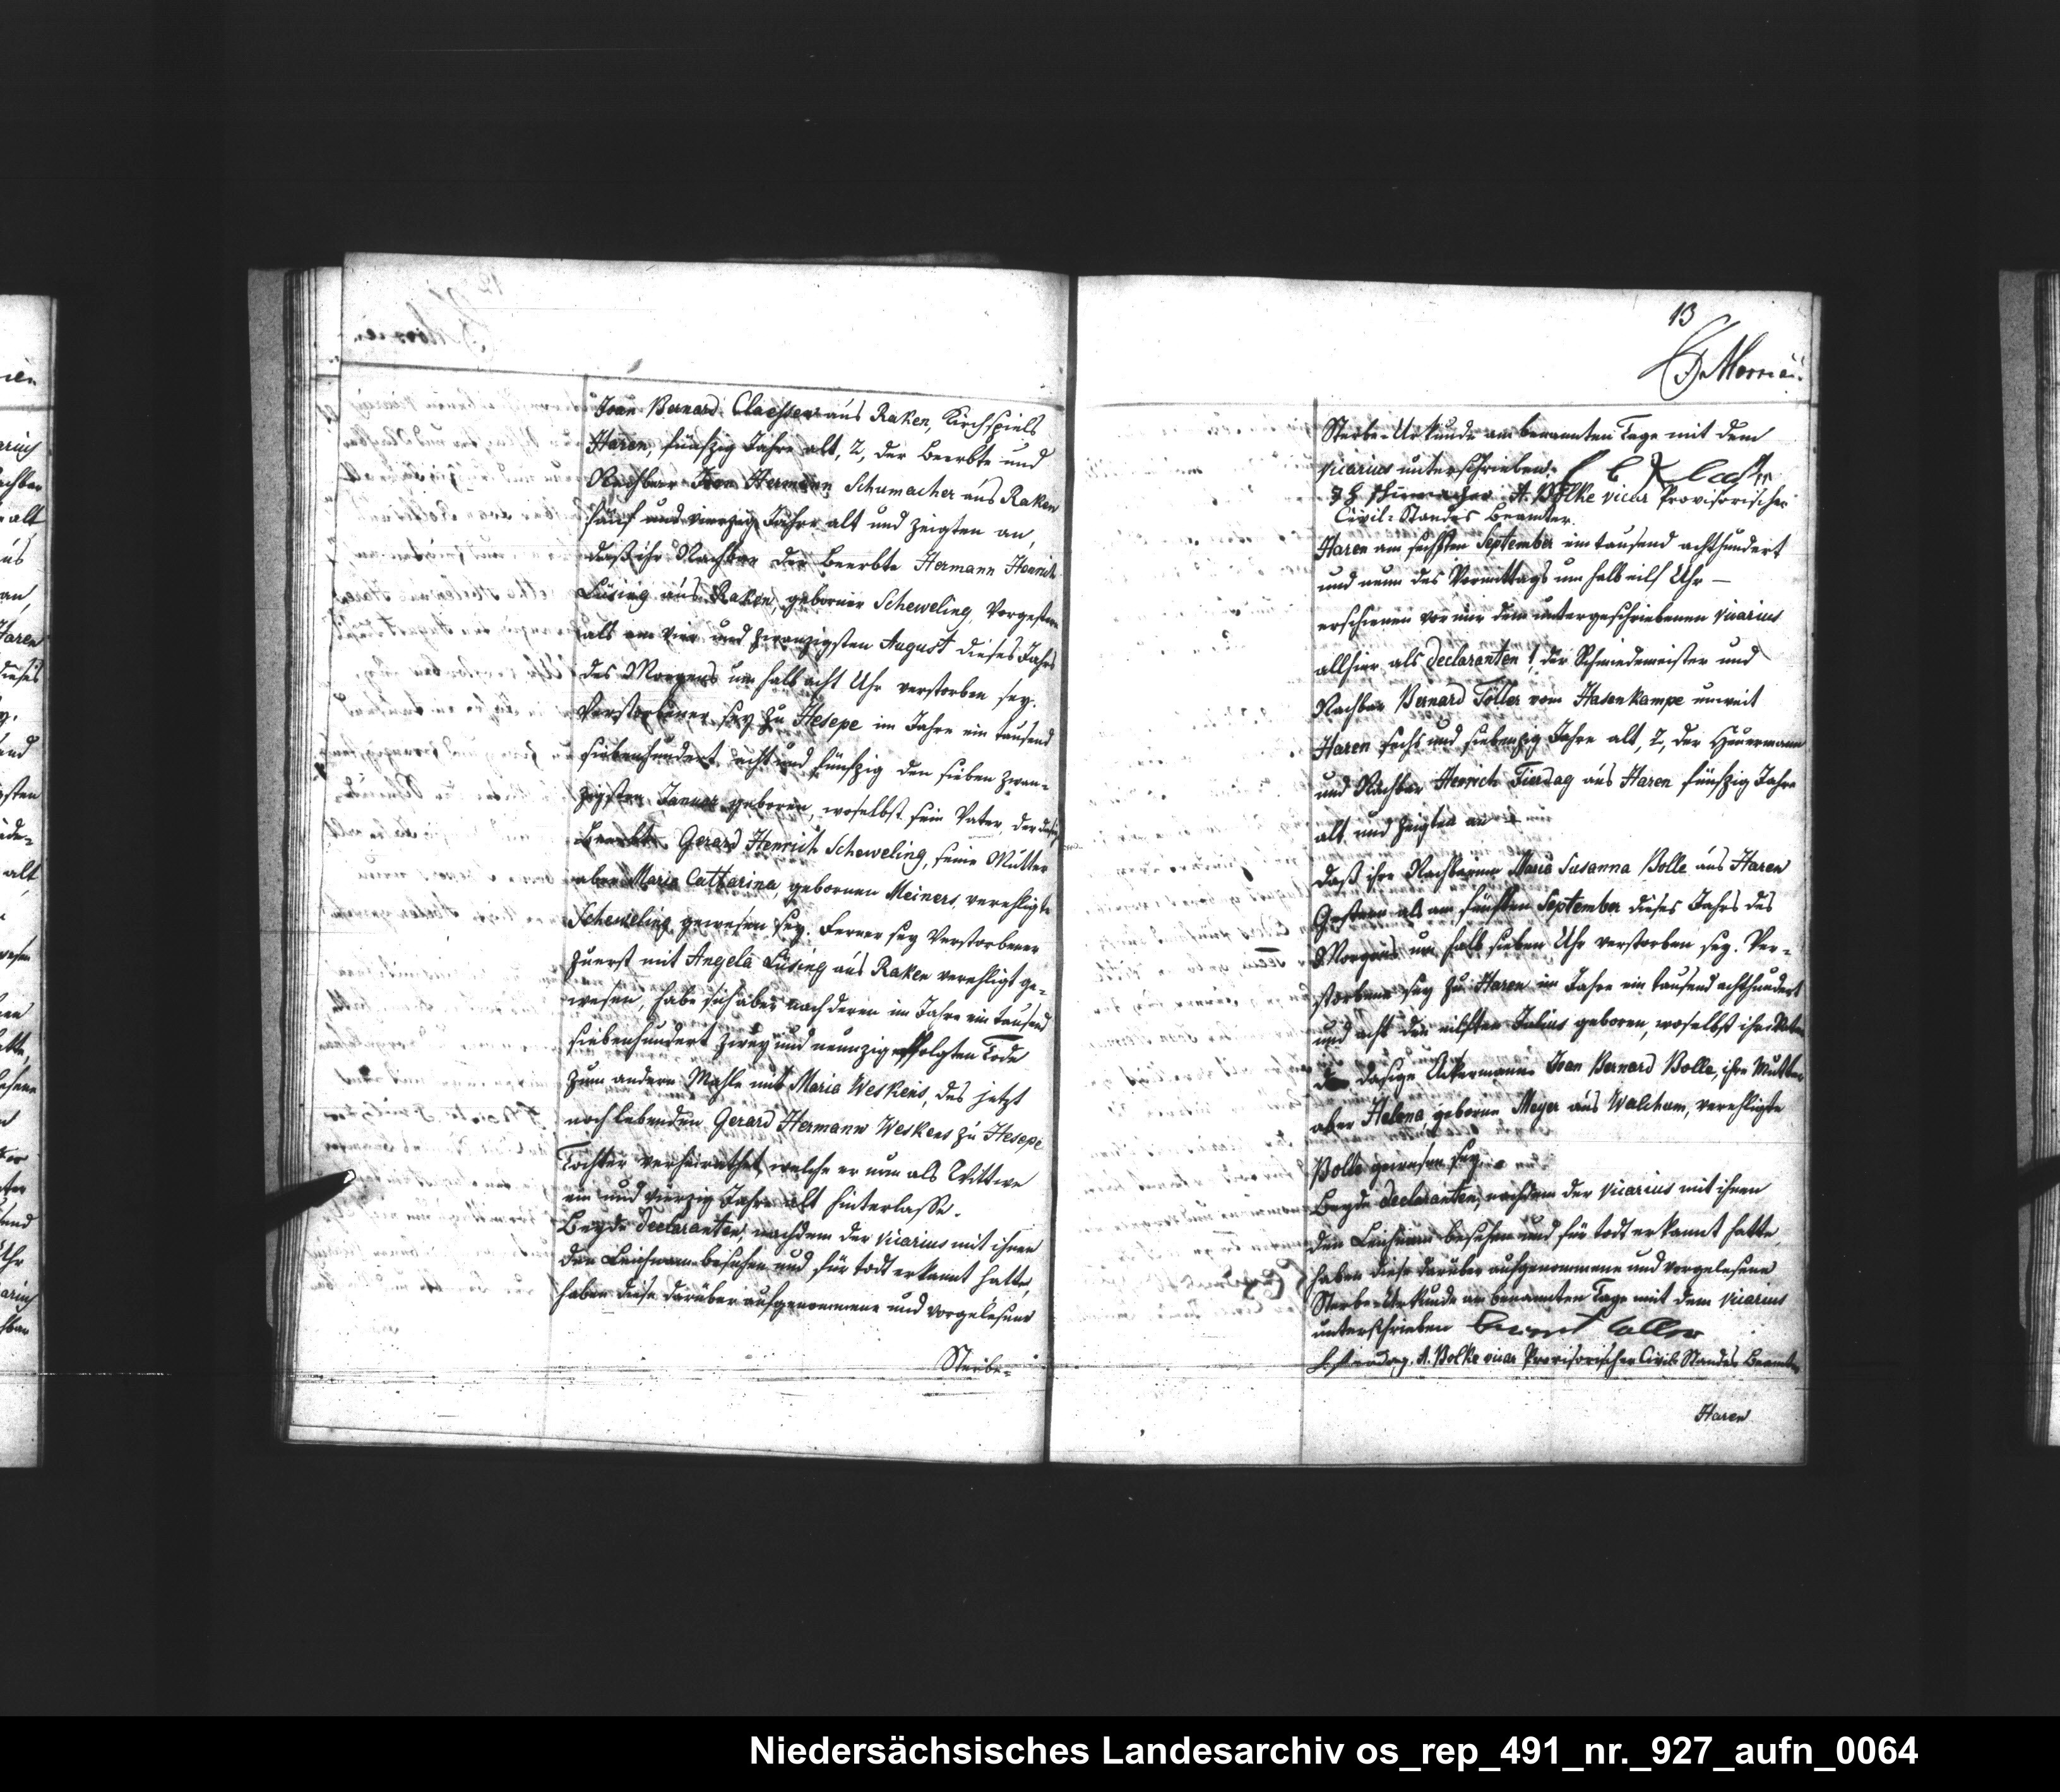 Joan Bernard Claessen aus Raken, Kirchspiels
Haren, fünfzig Jahre alt, 2, der Beerbte und
Nachbar Joan Hermann Schumacher aus Raken
fünf und vierzig Jahre alt und zeigten an,
daß ihr Nachbar der Beerbte Hermann Henrich
Lüsing aus Raken, geborner Scheweling, Vorgestern
als am vier und zwanzigsten August dieses Jahrs
des Morgens um halb acht Uhr verstorben sey.
Verstorbener sey zu Hesepe im Jahre ein tausend
siebenhundert acht und fünfzig den sieben zwan-
zigsten Januar geboren, woselbst sein Vater, der dasige
Beerbte Gerard Henrich Scheweling, seine Mutter
aber Maria Catharina, gebornen Meiners, verehligte
Scheweling gewesen sey. Ferner sey Verstorbener
zuerst mit Angela Lüsing aus Raken verehligt ge-
wesen, habe sich aber nach deren im Jahre ein tausend
siebenhundert zwey und neunzig erfolgten Tode
zum andern Mahle mit Maria Weskens, des jetzt
noch lebenden Gerard Hermann Weskens zu Hesepe
Tochter verheirathet, welche er nun als Wittwe
ein und vierzig Jahre alt hinterlasse.
Beyde Declaranten, nachdem der Vicarius mit ihnen
den Leichnam besehen und für todt erkannt hatte,
haben diese darüber aufgenommene und vorgelesene
Sterbe-
13
Sterbe-Urkunde am benannten Tage mit dem
Vicarius unterschrieben.
A. Bolke vicar Provisorischer
Civil-Standes Beamter.
Haren am sechsten September ein tausend achthundert
und neun des Vormittags um halb eilf Uhr —
erschienen vor mir dem untergeschriebenen Vicarius
allhier als Declaranten 1, der Schmiedemeister und
Nachbar Bernard Töller vom Hasenkampe unweit
Haren sechs und siebenzig Jahre alt, 2, der Heuermann
und Nachbar Henrich Fierdag aus Haren fünfzig Jahre
alt und zeigten an
daß ihre Nachbarinn Maria Susanna Bolle aus Haren
Gestern als am fünften September dieses Jahrs des
Morgens um halb sieben Uhr verstorben sey. Ver-
storbene sey zu Haren im Jahre ein tausend achthundert
und acht den eilften Julius geboren, woselbst ihr Vater
der dasige Ackermann Joan Bernard Bolle, ihre Mutter
aber Helena, geborne Meyer aus Walchum, verehligte
Bolle gewesen sey.
Beyde Declaranten, nachdem der Vicarius mit ihnen
den Leichnam besehen und für todt erkannt hatte
haben diese darüber aufgenommene und vorgelesene
Sterbe-Urkunde am benannten Tage mit dem Vicarius
unterschrieben
A. Bolke vicar Provisorischer Civil-Standes Beamter
Haren
Niedersächsisches Landesarchiv os_rep_491_nr._927_aufn_0064